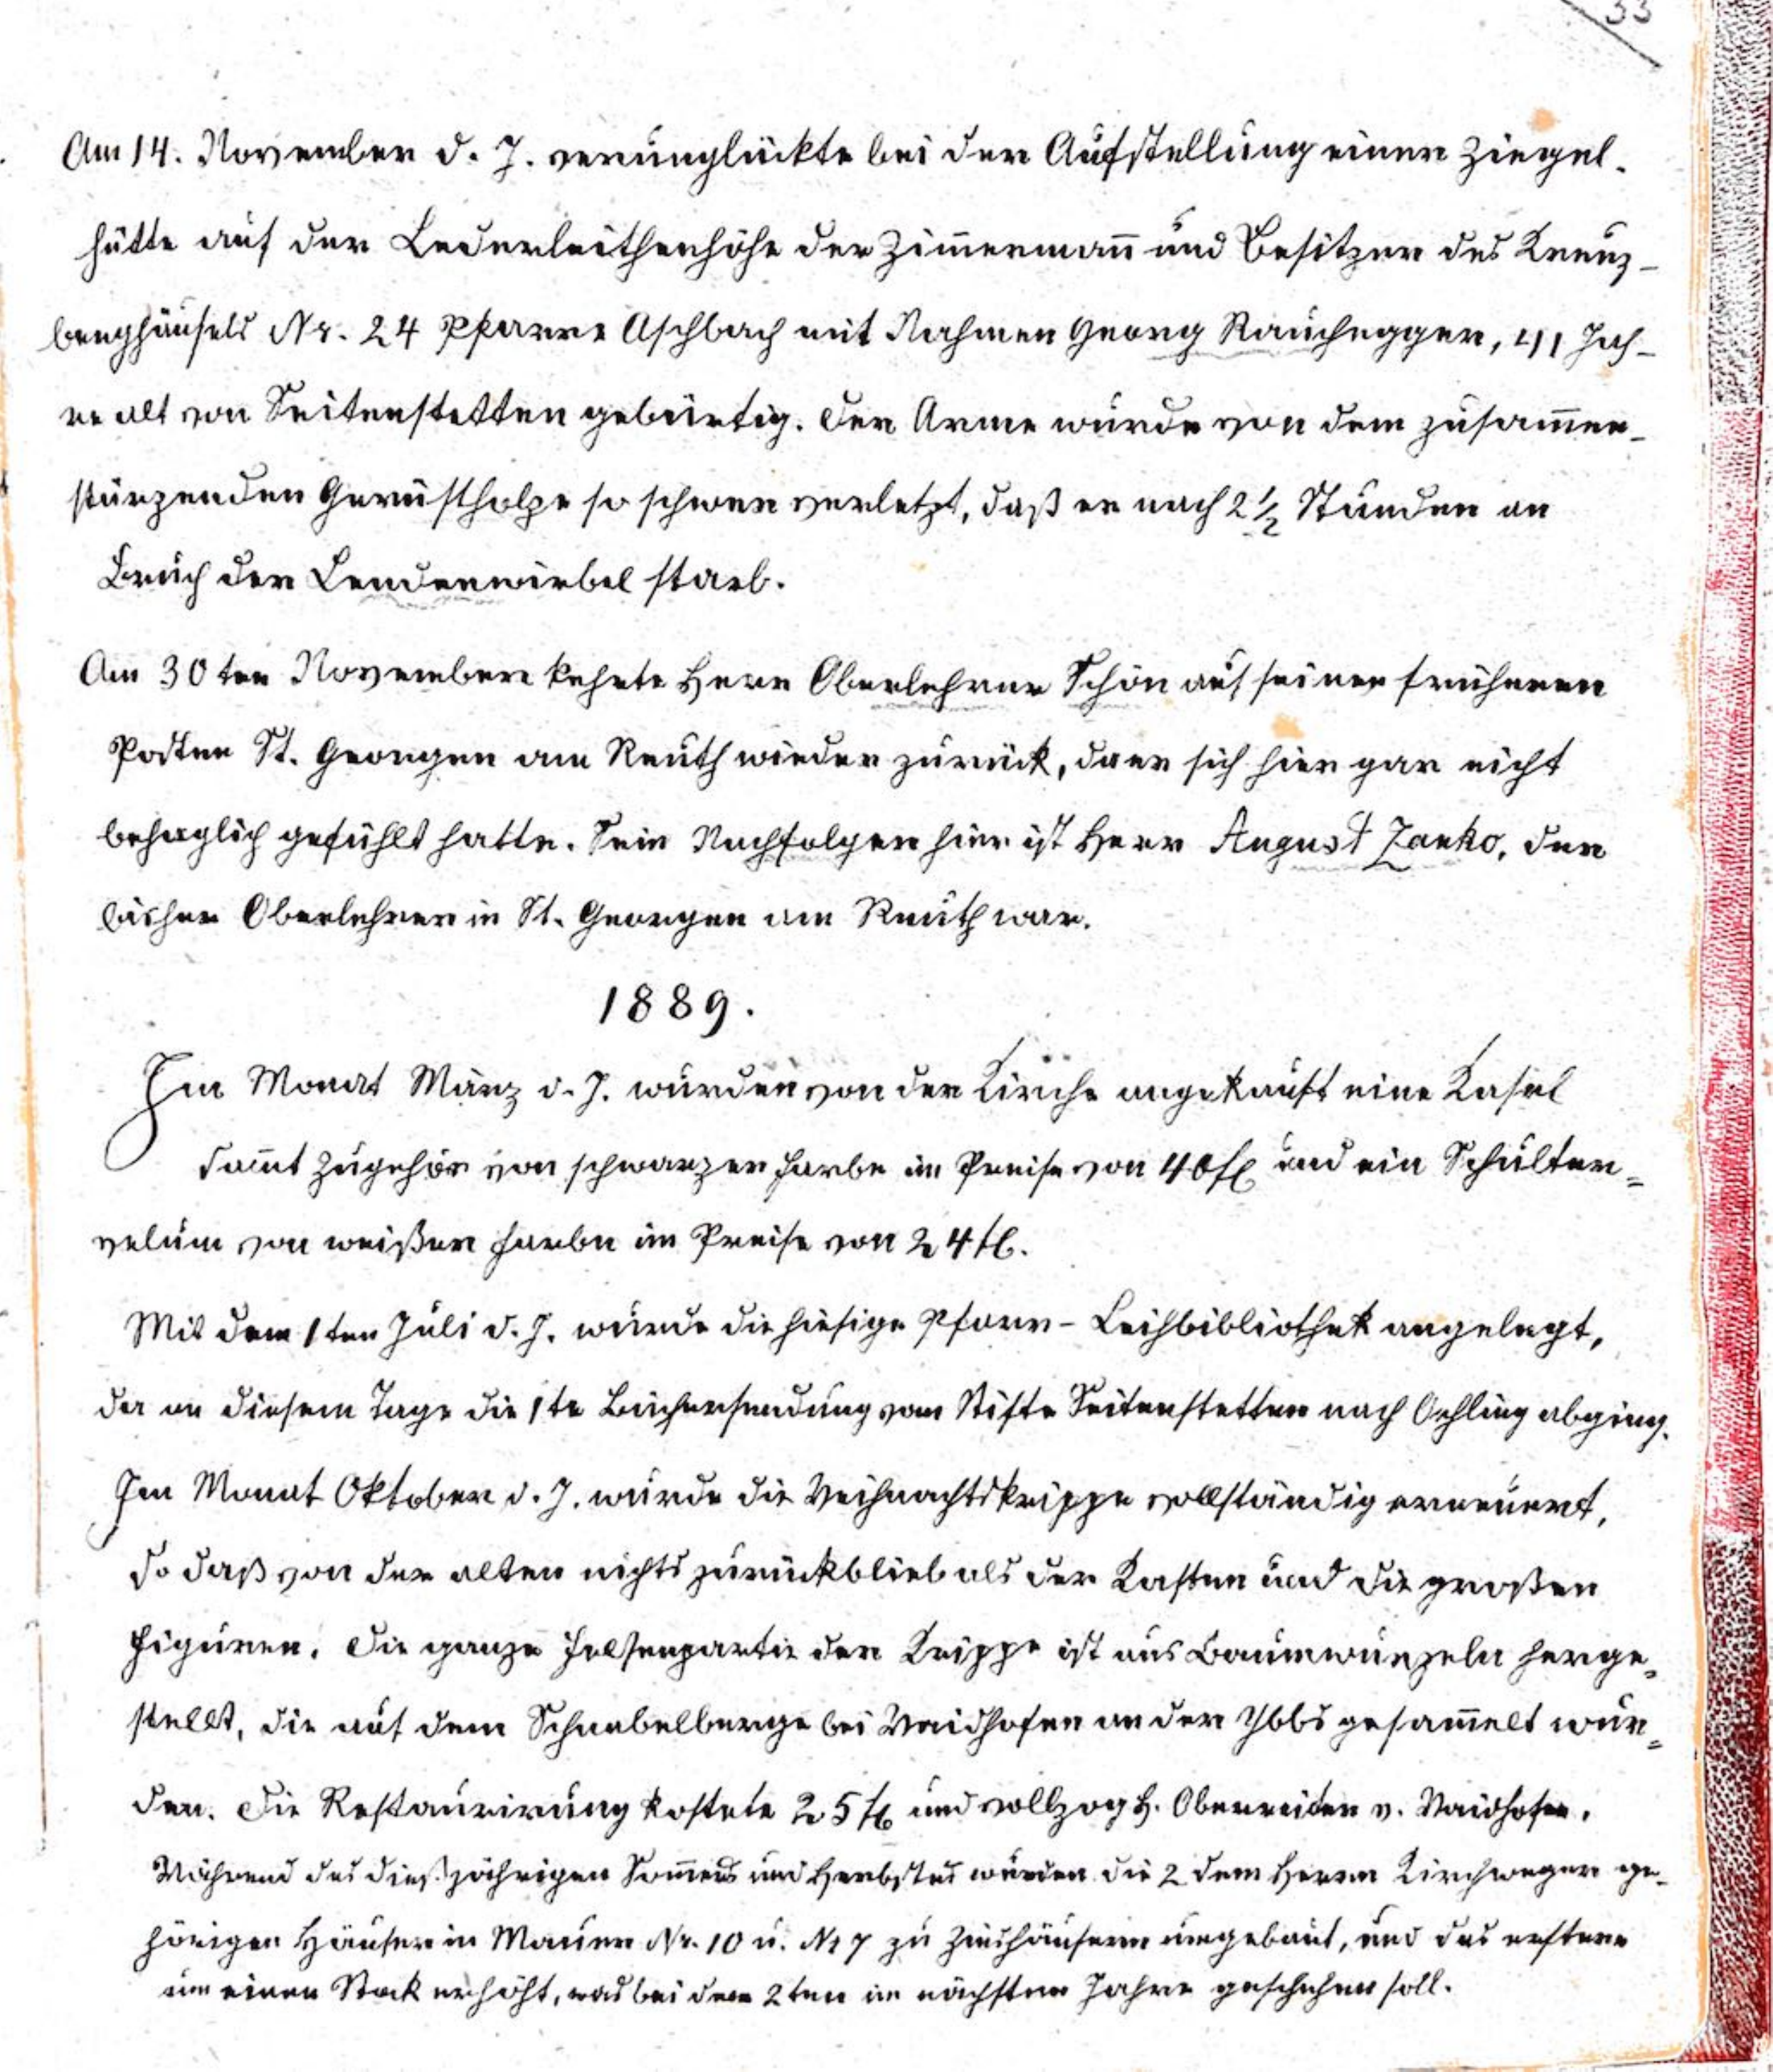 33
Am 14. November d. J. verunglückte bei der Aufstellung einer Ziegel-
hütte auf der Lederleithenhöhe der Zim̄ermann̄ und Besitzer des Kreuz-
berghäusels Nr. 24 Pfarre Aschbach mit Nahmen Georg Rauchegger, 41 Jah-
re alt von Seitenstetten gebürtig. Der Arme wurde von dem zusam̄en-
stürzenden Gerüstholze so schwer verletzt, daß er nach 2½ Stunden an
Bruch der Lendenwirbel starb.
Am 30ten November kehrte Herr Oberlehrer Schön auf seinen früheren
Posten St. Georgen am Reuth wieder zurück, da er sich hier gar nicht
behaglich gefühlt hatte. Sein Nachfolger hier ist Herr August Zanko, der
bisher Oberlehrer in St. Georgen am Reuth war.
1889.
Im Monat März d. J. wurden von der Kirche angekauft eine Kasel
sam̄t Zugehör von schwarzer Farbe im Preise von 40 fl und ein Schulter=
velum von weißer Farbe im Preise von 24 fl.
Mit dem 1ten Juli d. J. wurde die hiesige Pfarr-Leihbibliothek angelegt,
da an diesem Tage die 1te Büchersendung vom Stifte Seitenstetten nach Oehling abging.
Im Monat Oktober d. J. wurde die Weihnachtskrippe vollständig erneuert,
so daß von der alten nichts zurückblieb als der Kasten und die großen
Figuren. Die ganze Felsenpartie der Krippe ist aus Baumwurzeln herge=
stellt, die auf dem Schnabelberge bei Waidhofen an der Ybbs gesam̄elt wur=
den. Die Restaurirung kostete 25 fl und vollzog H. Oberreiter v. Waidhofen.
Während des dießjährigen Som̄ers und Herbstes wurden die 2 dem Herrn Kirchweger ge-
hörigen Häuser in Mauer Nr. 10 u. Nr 7 zu Zinshäusern umgebaut, und das erstere
um einen Stock erhöht, was bei dem 2ten im nächsten Jahre geschehen soll.